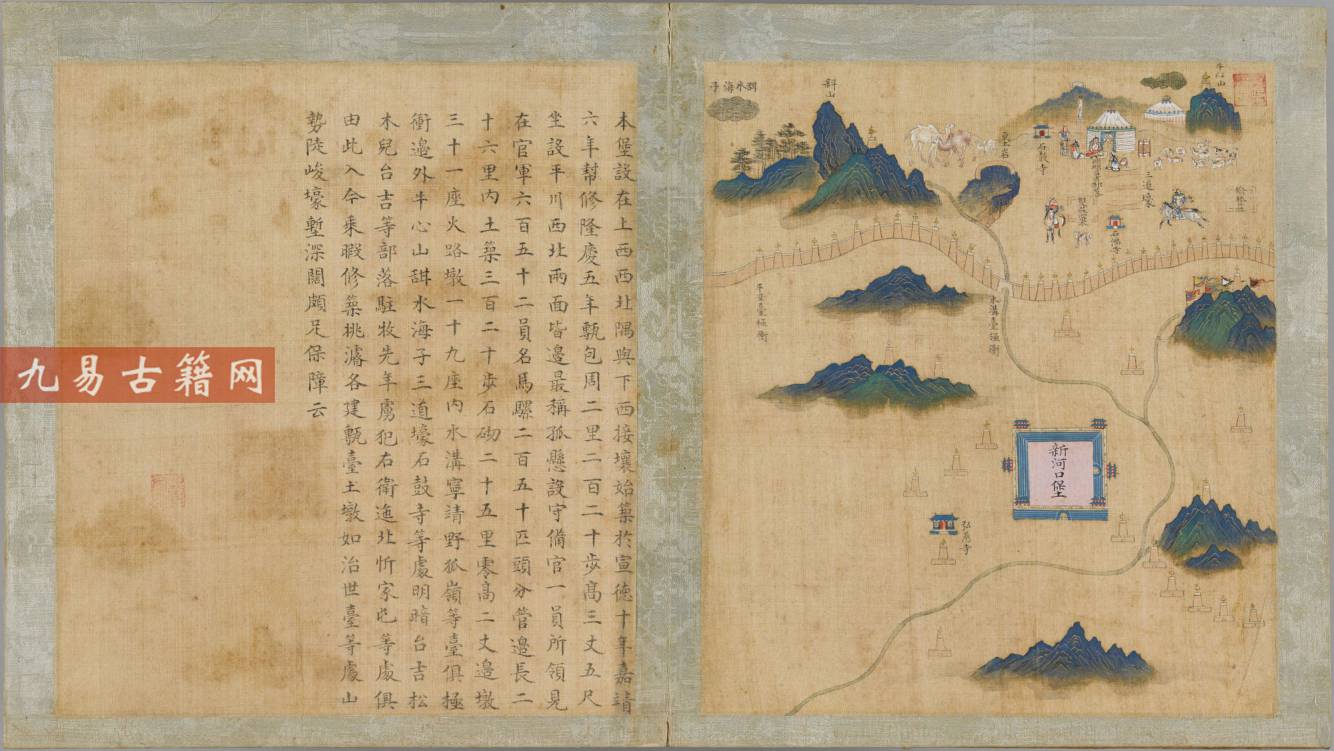 本堡設在上西西北隅與下西接壤始築於宣德十年嘉靖
六年幫修隆慶五年甎包周二里二百二十步髙三丈五尺
坐設平川西北兩面皆邉最稱孤懸設守備官一員所領見
在官軍六百五十二員名馬騾二百五十匹頭分管邉長二
十六里內土築三百二十步石砌二十五里零髙二丈邉墩
三十一座火路墩一十九座內水溝寧靖野狐嶺等臺俱極
衝邉外牛心山甜水海子三道壕石鼓寺等處明暗台吉松
木兒台吉等部落駐牧先年虜犯右衛迤北忻家屯等處俱
由此入今乘暇修築挑濬各建甎臺土墩如治世臺等處山
勢陵峻壕塹深闊頗足保障云
牛心山
海子
斜山
石鼓寺
三道壕
石佛寺
水溝臺極衝
寧靖臺極衝
新河口堡
弘慈寺
九易古籍网